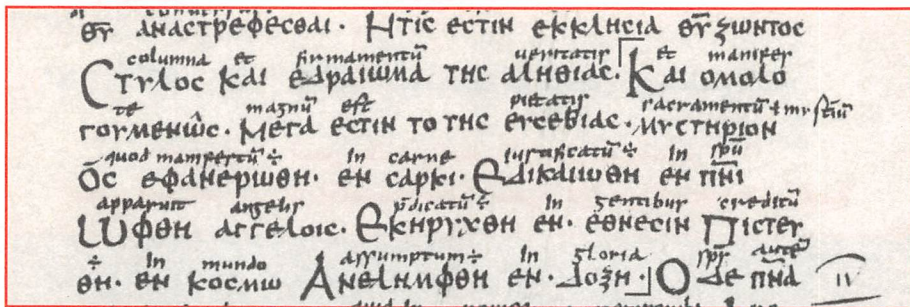 θ̅υ̅ αναϲτρεφεϲθαι· Ητιϲ εϲτιν εκκληϲια θ̅υ̅ ζωντοϲ
columna et firmamentū ueritatis et manifes
Ϲτυλοϲ και εδραιωμα τηϲ αληθιαϲ. Και ομολο
te magnū est pietatis sacramentū ł mysteriū
γουμενωϲ· Μεγα εϲτιν το τηϲ ευϲεβιαϲ· μυϲτηριον
quod manifestū ÷ In carne iustificatū ÷ In sp̅u̅
Οϲ εφανερωθη· εν ϲαρκι· Εδικαιωθη εν π̅ν̅ι̅
apparuit angelis p̅dicatū ÷ In gentibus creditū
Ωφθη αγγελοιϲ· Εκηρυχθη εν· εθνεϲιν Πιϲτευ
÷ In mundo assumptum ÷ In gloria sp̅s̅ autē
θη· εν κοϲμω Ανελημφθη εν· δοξη· Ο δε π̅ν̅α̅